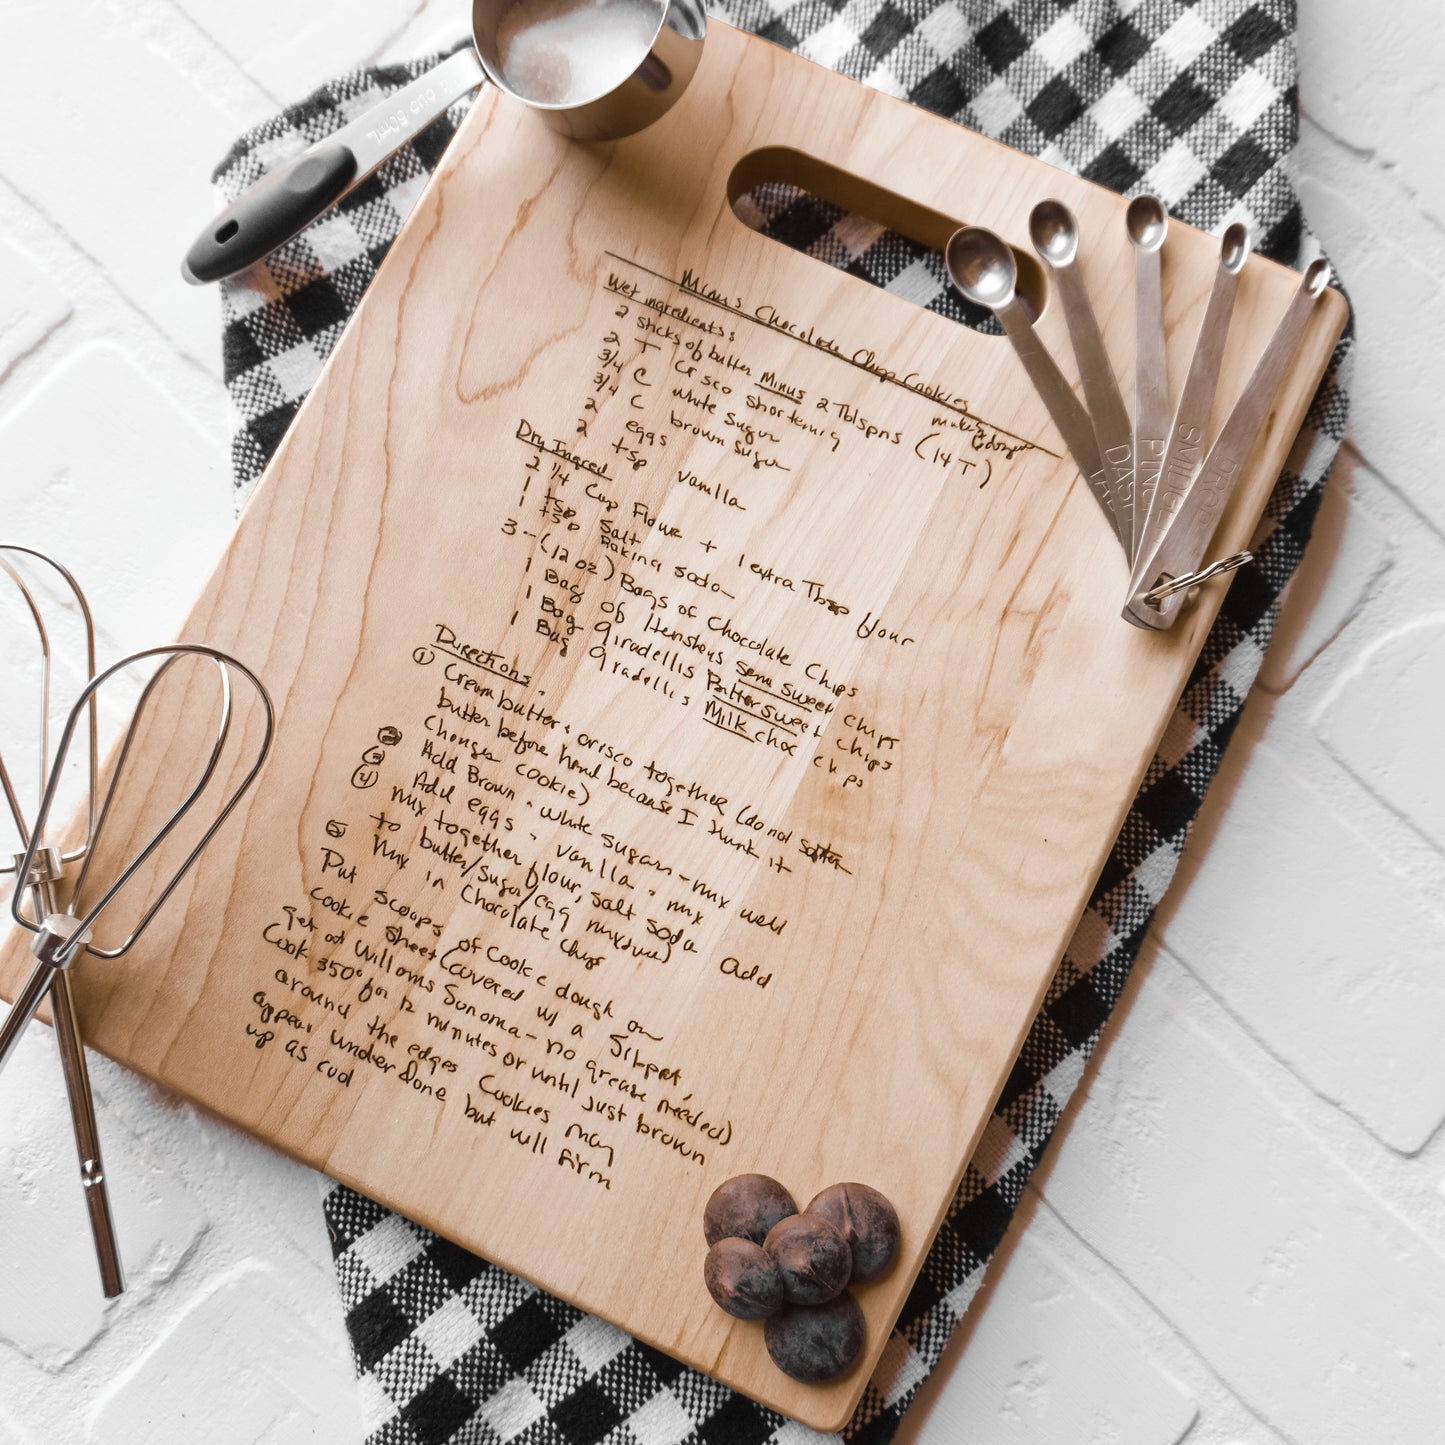 1/4 CUP 60mL
Minus Chocolate Chip Cookies
makes dozen
Wet ingredients:
2 sticks of butter Minus 2 Tblspns (14 T)
2 T Crisco shortening
3/4 C white sugar
3/4 C brown sugar
2 eggs
2 tsp vanilla
Dry Ingred
2 1/4 Cup Flour + 1 extra Tbsp flour
1 tsp Salt
1 tsp Baking soda
3 - (12 oz) Bags of Chocolate Chips
1 Bag of Hersheys Semi sweet chips
1 Bag Giradellis Bittersweet chips
1 Bag Giradellis Milk choc chips
Directions:
① Cream butter + crisco together (do not soften
butter before hand because I think it
changes cookie)
② Add Brown + white sugars - mix well
③ Add eggs + vanilla + mix
④ mix together flour, salt soda add
to butter/sugar/egg mixture)
⑤ Mix in Chocolate chips
Put scoops of cookie dough on
cookie sheet (covered w/ a Silpat,
get at Williams Sonoma - no grease needed)
Cook 350° for 12 minutes or until just brown
around the edges Cookies may
appear under done but will firm
up as cool
DASH
PINCH
SMIDGEN
DROP